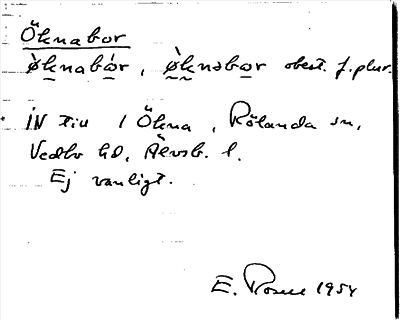 Öknabor
øknabór, øknəbor obest. f. plur.
IN till 1 Ökna, Rölanda sn,
Vedbo hd, Älvsb. l.
Ej vanligt.
E. Rosell 1954